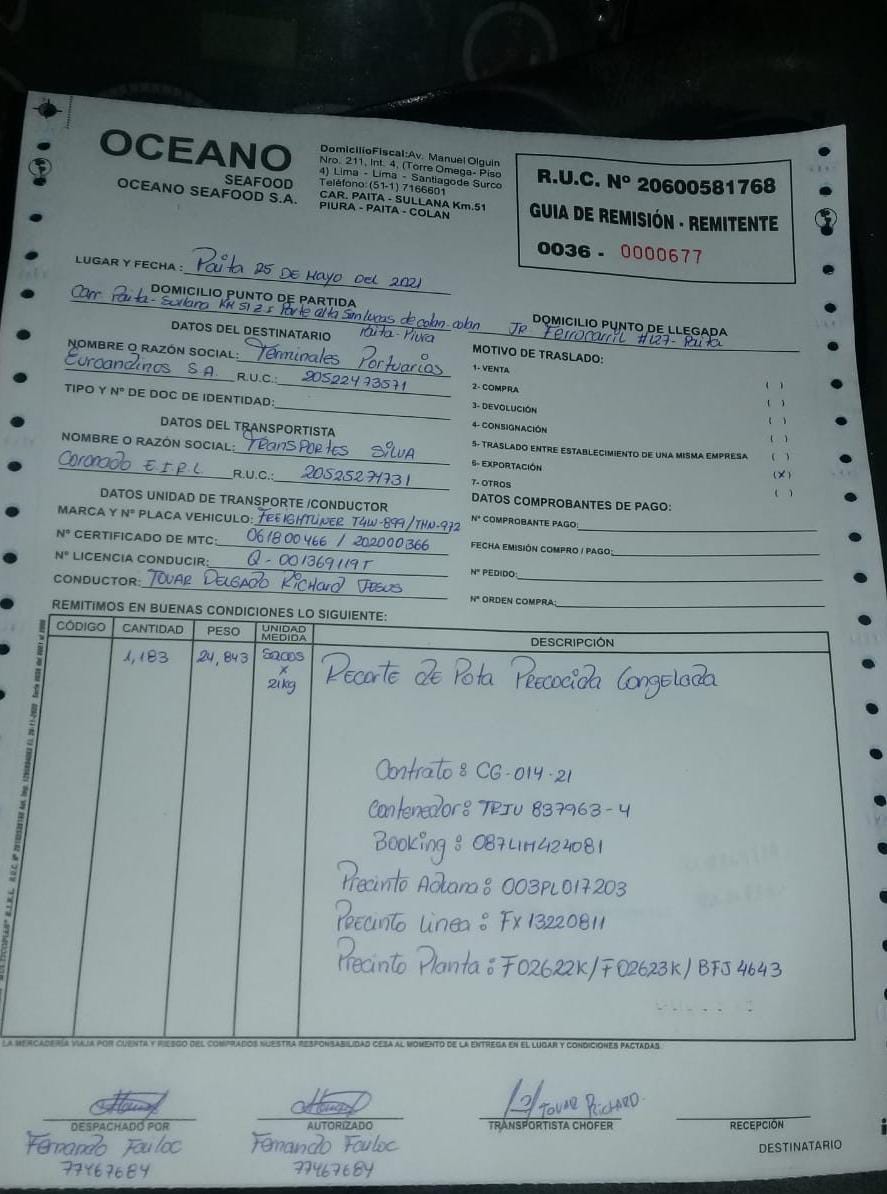 OCEANO
SEAFOOD
OCEANO SEAFOOD S.A.
DomicilioFiscal:Av. Manuel Olguin
Nro. 211, Int. 4, (Torre Omega- Piso
4) Lima - Lima - Santiagode Surco
Teléfono: (51-1) 7166601
CAR. PAITA - SULLANA Km.51
PIURA - PAITA - COLAN
R.U.C. Nº 20600581768
GUIA DE REMISIÓN - REMITENTE
0036 - 0000677
LUGAR Y FECHA : Paita 25 DE Mayo DEL 2021
DOMICILIO PUNTO DE PARTIDA
Carr Paita-Sullana KM 51 Parte alta San lucas de colan-colan
Paita-Piura
DOMICILIO PUNTO DE LLEGADA
JR Ferrocarril #127- Paita
DATOS DEL DESTINATARIO
NOMBRE O RAZÓN SOCIAL: Terminales Portuarios
Euroandinos S A. R.U.C.: 20522473571
TIPO Y Nº DE DOC DE IDENTIDAD:
DATOS DEL TRANSPORTISTA
NOMBRE O RAZÓN SOCIAL: TRANSPORTES SILVA
Coronado E.I.R.L R.U.C.: 20525274731
DATOS UNIDAD DE TRANSPORTE /CONDUCTOR
MARCA Y Nº PLACA VEHICULO: FREIGHTLINER T4W-899/THN-972
Nº CERTIFICADO DE MTC: 061800466 / 202000366
Nº LICENCIA CONDUCIR: Q - 001369119T
CONDUCTOR: TOVAR DELGADO RICHARD JESUS
MOTIVO DE TRASLADO:
1- VENTA ( )
2- COMPRA ( )
3- DEVOLUCIÓN ( )
4- CONSIGNACIÓN ( )
5- TRASLADO ENTRE ESTABLECIMIENTO DE UNA MISMA EMPRESA ( )
6- EXPORTACIÓN (X)
7- OTROS ( )
DATOS COMPROBANTES DE PAGO:
Nº COMPROBANTE PAGO:
FECHA EMISIÓN COMPRO / PAGO:
Nº PEDIDO:
Nº ORDEN COMPRA:
REMITIMOS EN BUENAS CONDICIONES LO SIGUIENTE:
CÓDIGO CANTIDAD PESO UNIDAD MEDIDA DESCRIPCIÓN
1,183 24,843 Sacos x 21kg Recorte de Pota Precocida Congelada
Contrato : CG-014-21
Contenedor: TRIU 837963-4
Booking : 087LIM424081
Precinto Aduana : 003PL017203
Precinto Linea : FX13220811
Precinto Planta : F02622K/F02623K/BFJ4643
LA MERCADERÍA VIAJA POR CUENTA Y RIESGO DEL COMPRADOS NUESTRA RESPONSABILIDAD CESA AL MOMENTO DE LA ENTREGA EN EL LUGAR Y CONDICIONES PACTADAS.
TOVAR RICHARD.
DESPACHADO POR AUTORIZADO TRANSPORTISTA CHOFER RECEPCIÓN
DESTINATARIO
Fernando Fauloc Fernando Fauloc
77467684 77467684